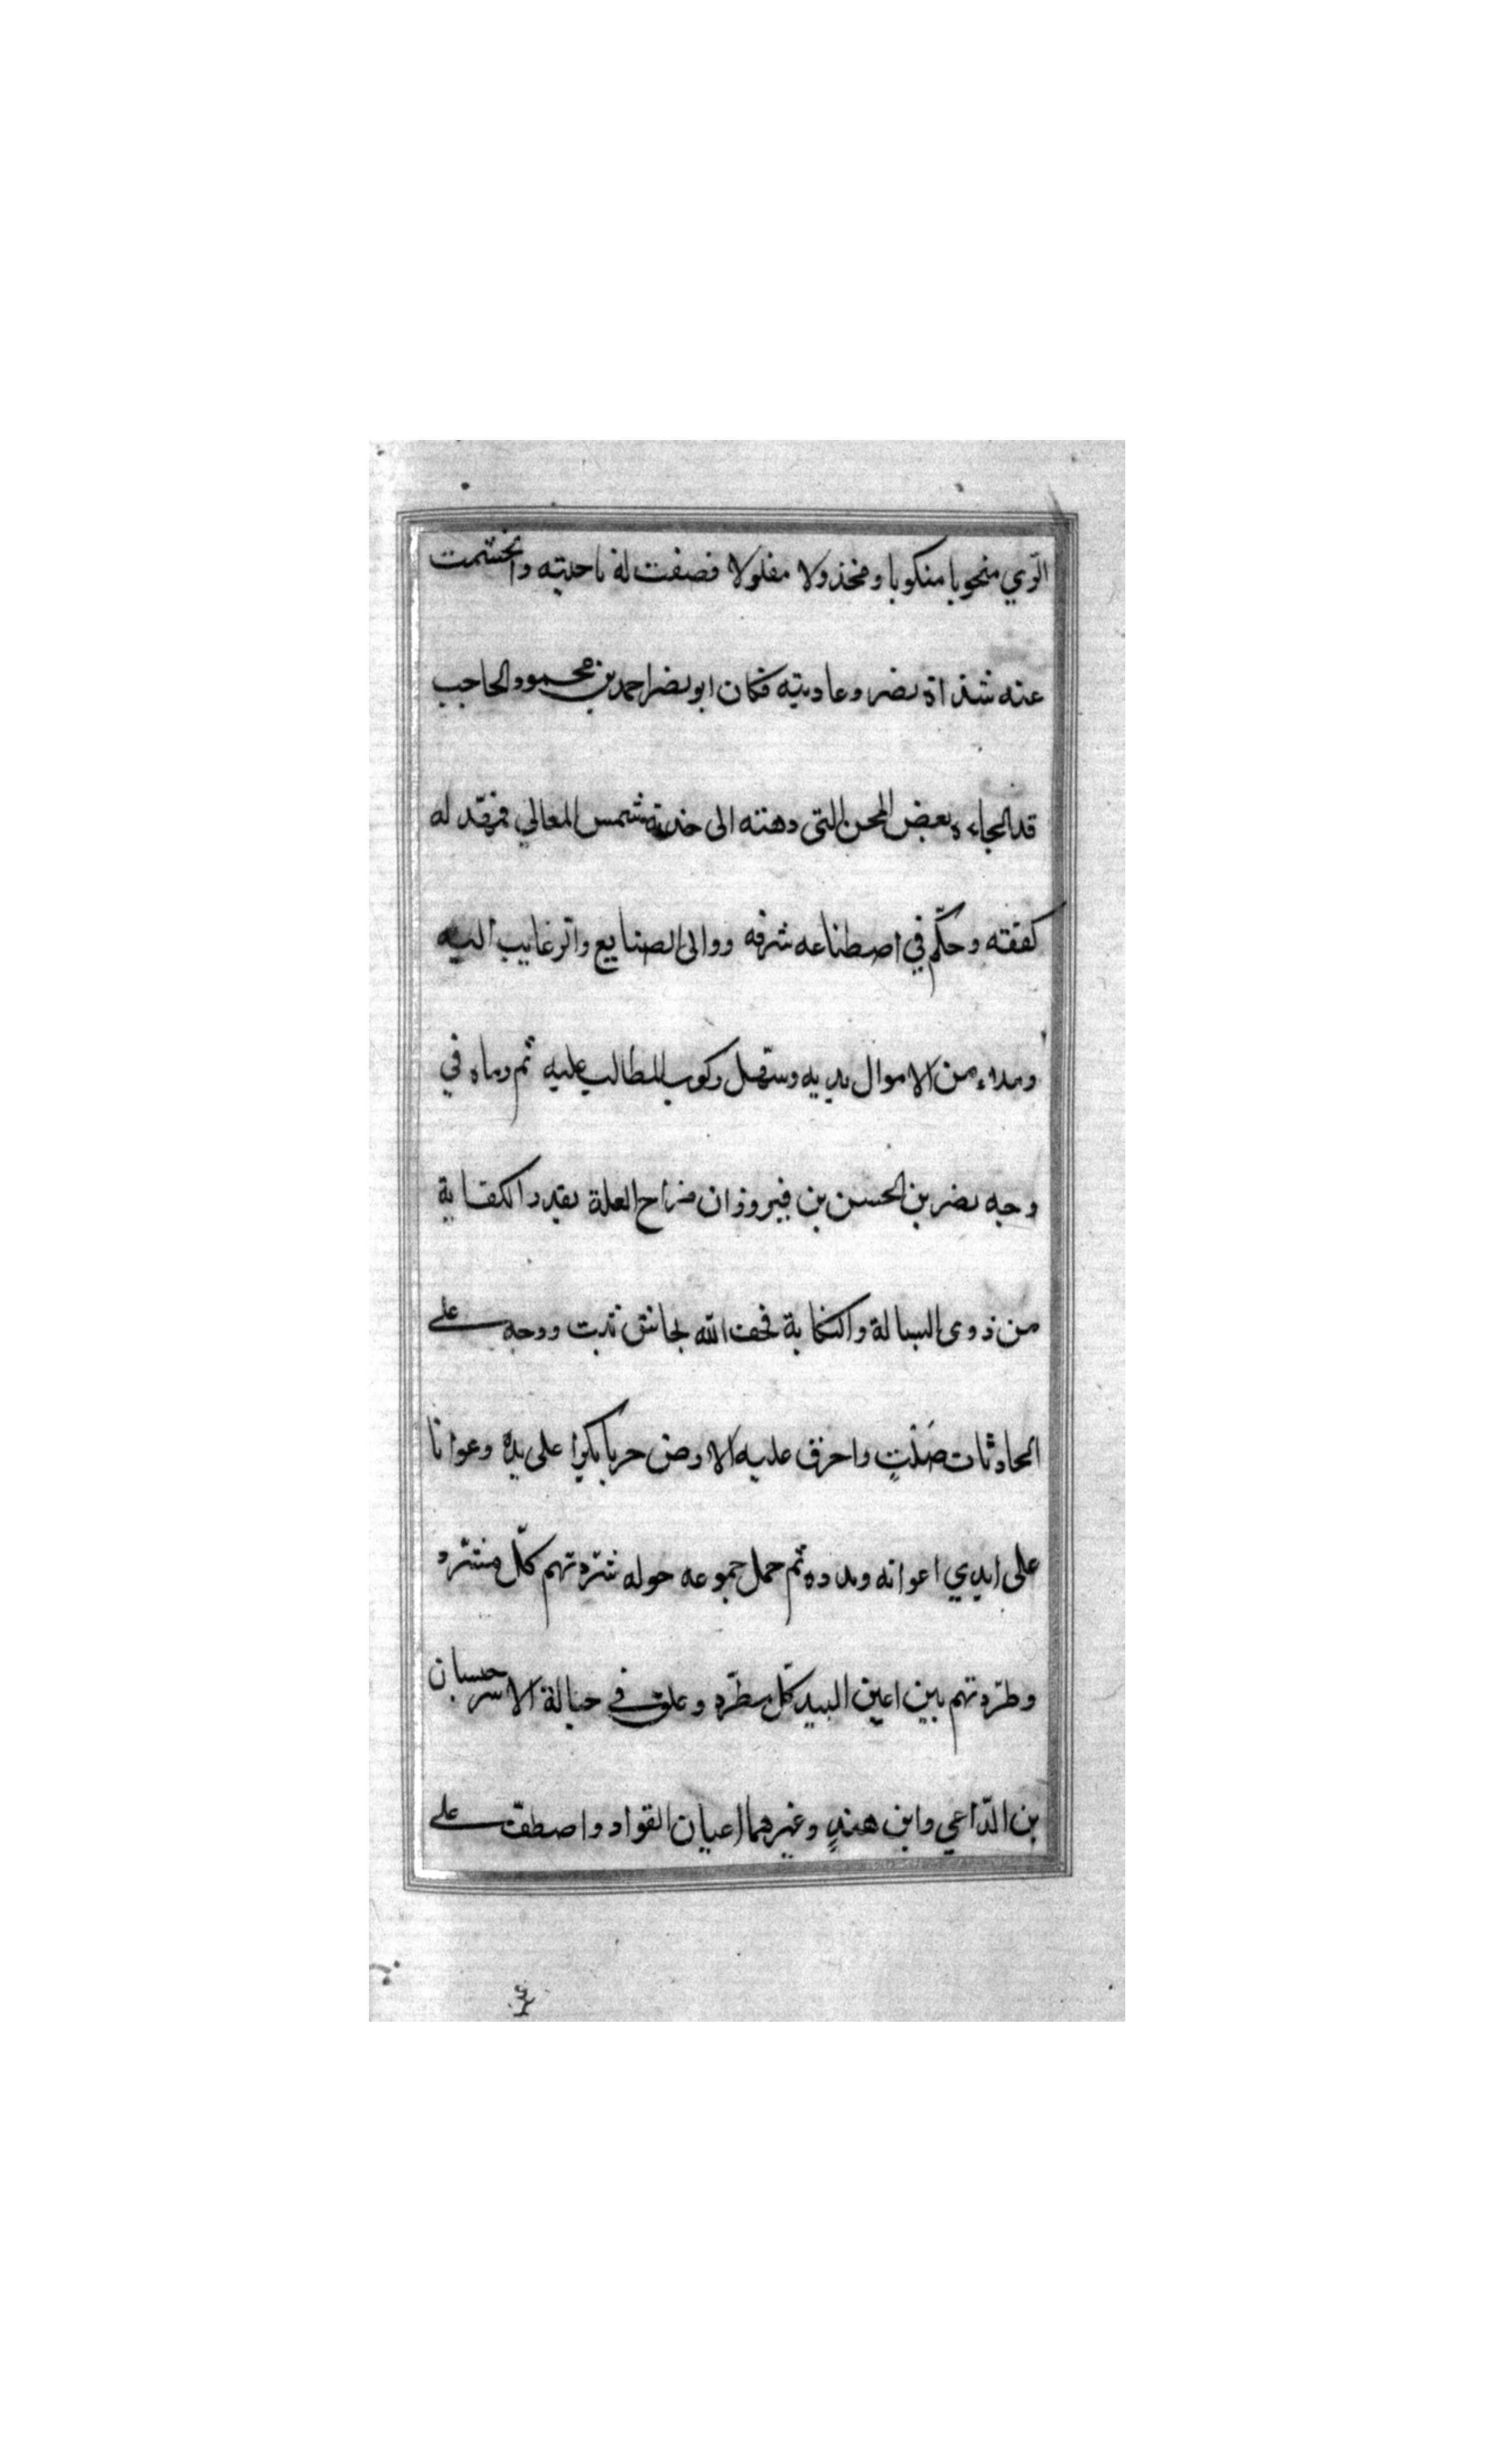 الرّي منحوبا منكوبا ومخذولا مفلولا فصفت له ناحيته وانحسمت
عنه شذاة نصر وعاديته فكان ابو نصر احمد بن محمود الحاجب
قد الجاءه بعض المحن التي دهته الى خدمة شمس المعالي فمهّد له
كفقته وحكّم في اصطناعه شرفه ووالى الصنايع والرغايب اليه
وملاء من الاموال يديه وسهّل ركوب المطالب عليه ثم رماه في
وجه نصر بن الحسن بن فيروزان مزاح العلة بقدر الكفاية
من ذوى البسالة والنكاية فخف الله بجانش ثبت ووجه على
الحادثات صلت واحرق عليه الارض حربا بكرا على يده وعوانا
على ايدي اعوانه ومدده ثم حمل جموعه حوله شرّدتهم كلّ مشرّد
وطرّدتهم بين اعين البيد كلّ مطرّد وعلق في حبالة الاسر جستان
بن الدّاعي وابن هندٍ وغيرهما اعيان القواد واصطفّت على